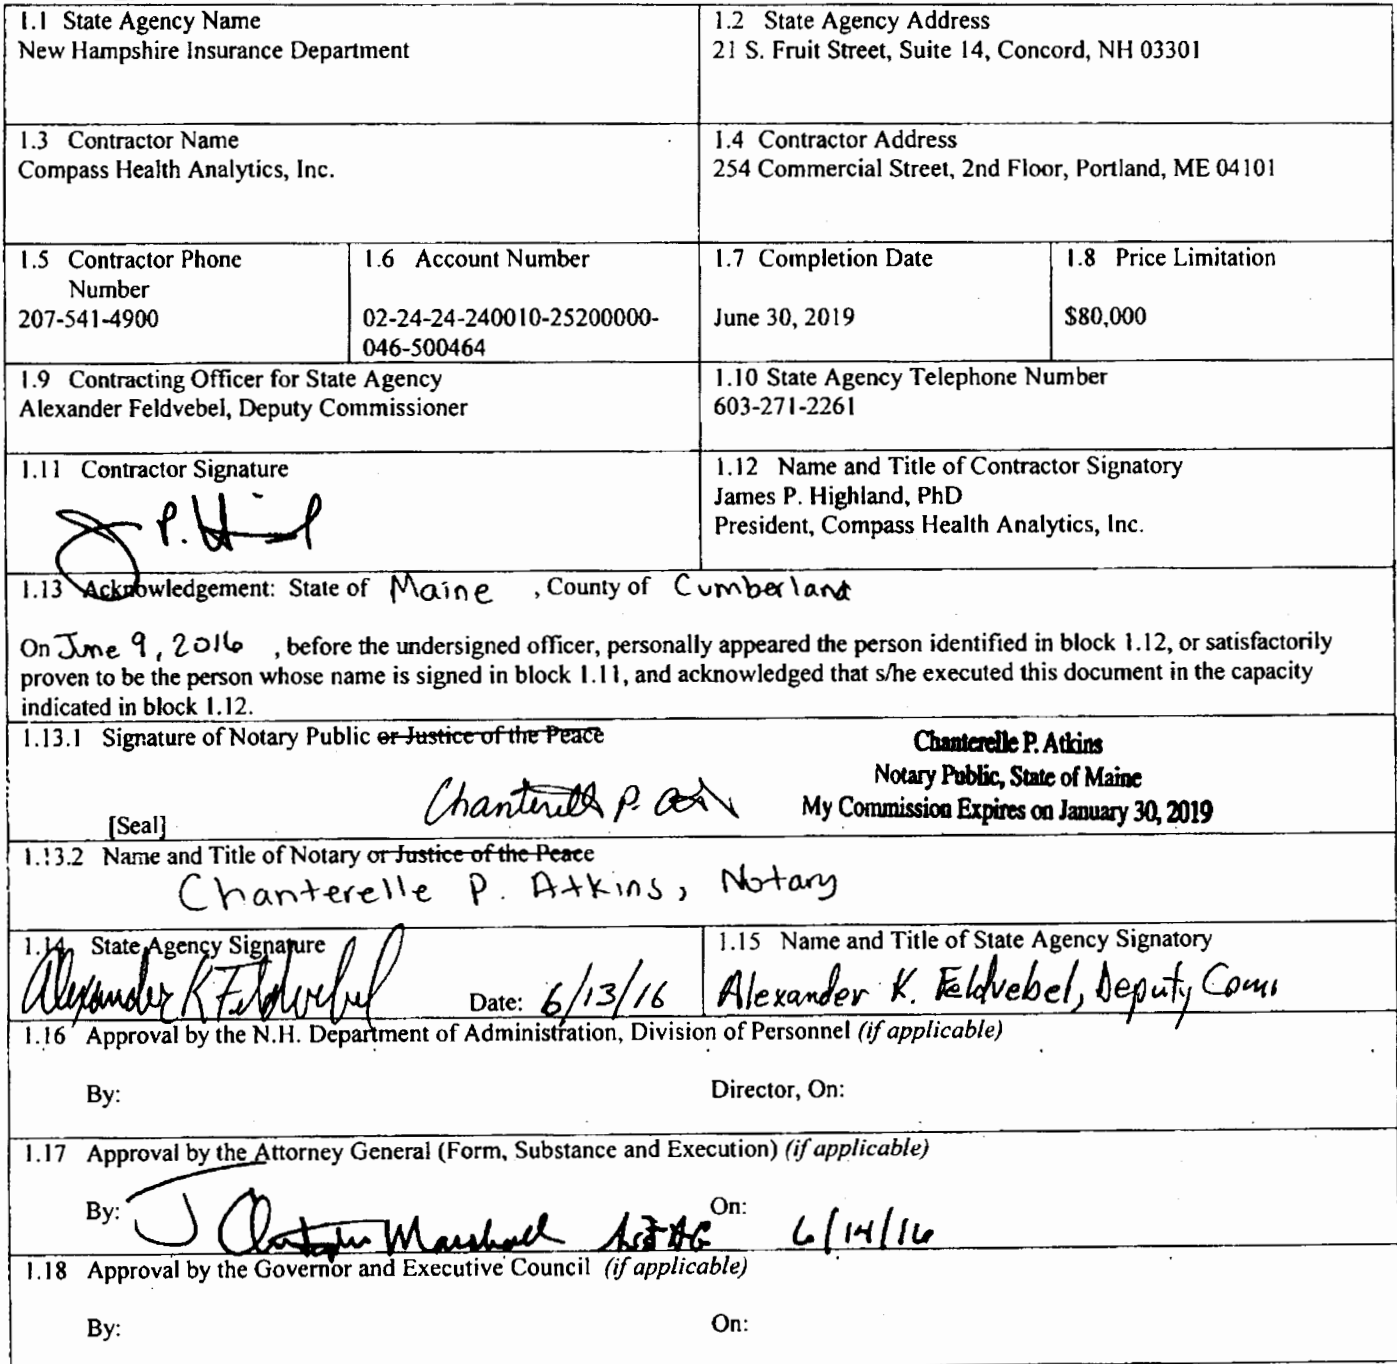 1.1 State Agency Name
New Hampshire Insurance Department
1.2 State Agency Address
21 S. Fruit Street, Suite 14, Concord, NH 03301
1.3 Contractor Name
Compass Health Analytics, Inc.
1.4 Contractor Address
254 Commercial Street, 2nd Floor, Portland, ME 04101
1.5 Contractor Phone
Number
207-541-4900
1.6 Account Number
02-24-24-240010-25200000-
046-500464
1.7 Completion Date
June 30, 2019
1.8 Price Limitation
$80,000
1.9 Contracting Officer for State Agency
Alexander Feldvebel, Deputy Commissioner
1.10 State Agency Telephone Number
603-271-2261
1.11 Contractor Signature
P.
1.12 Name and Title of Contractor Signatory
James P. Highland, PhD
President, Compass Health Analytics, Inc.
1.13 Acknowledgement: State of Maine , County of Cumberland
On June 9, 2016 , before the undersigned officer, personally appeared the person identified in block 1.12, or satisfactorily
proven to be the person whose name is signed in block 1.11, and acknowledged that s/he executed this document in the capacity
indicated in block 1.12.
1.13.1 Signature of Notary Public or Justice of the Peace
Chanterelle P. Atkins
Notary Public, State of Maine
My Commission Expires on January 30, 2019
Chanterelle P.
[Seal]
1.13.2 Name and Title of Notary or Justice of the Peace
Chanterelle P. Atkins, Notary
1.14 State Agency Signature
Alexander K Feldvebel
Date: 6/13/16
1.15 Name and Title of State Agency Signatory
Alexander K. Feldvebel, Deputy Comm
1.16 Approval by the N.H. Department of Administration, Division of Personnel (if applicable)
By:
Director, On:
1.17 Approval by the Attorney General (Form, Substance and Execution) (if applicable)
By: J Marshall AG
On: 6/14/16
1.18 Approval by the Governor and Executive Council (if applicable)
By:
On: